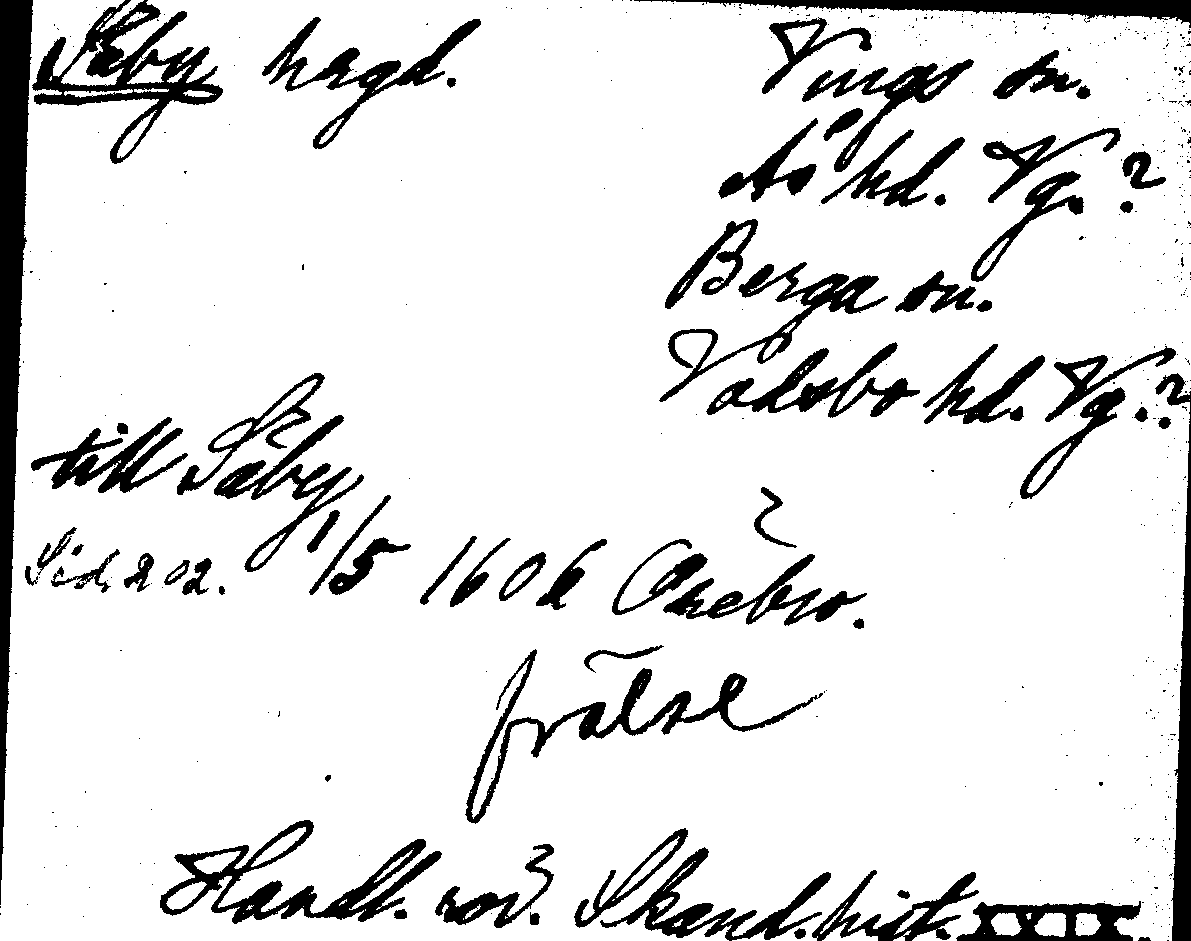 Säby hrgd.
Vings sn.
Ås hd. Vg.?
Berga sn.
Vadsbo hd. Vg.?
till Säby
Sid. 202. 1/5 1606 Örebro.
frälse
Handl. rör. Skand. hist. XXIX